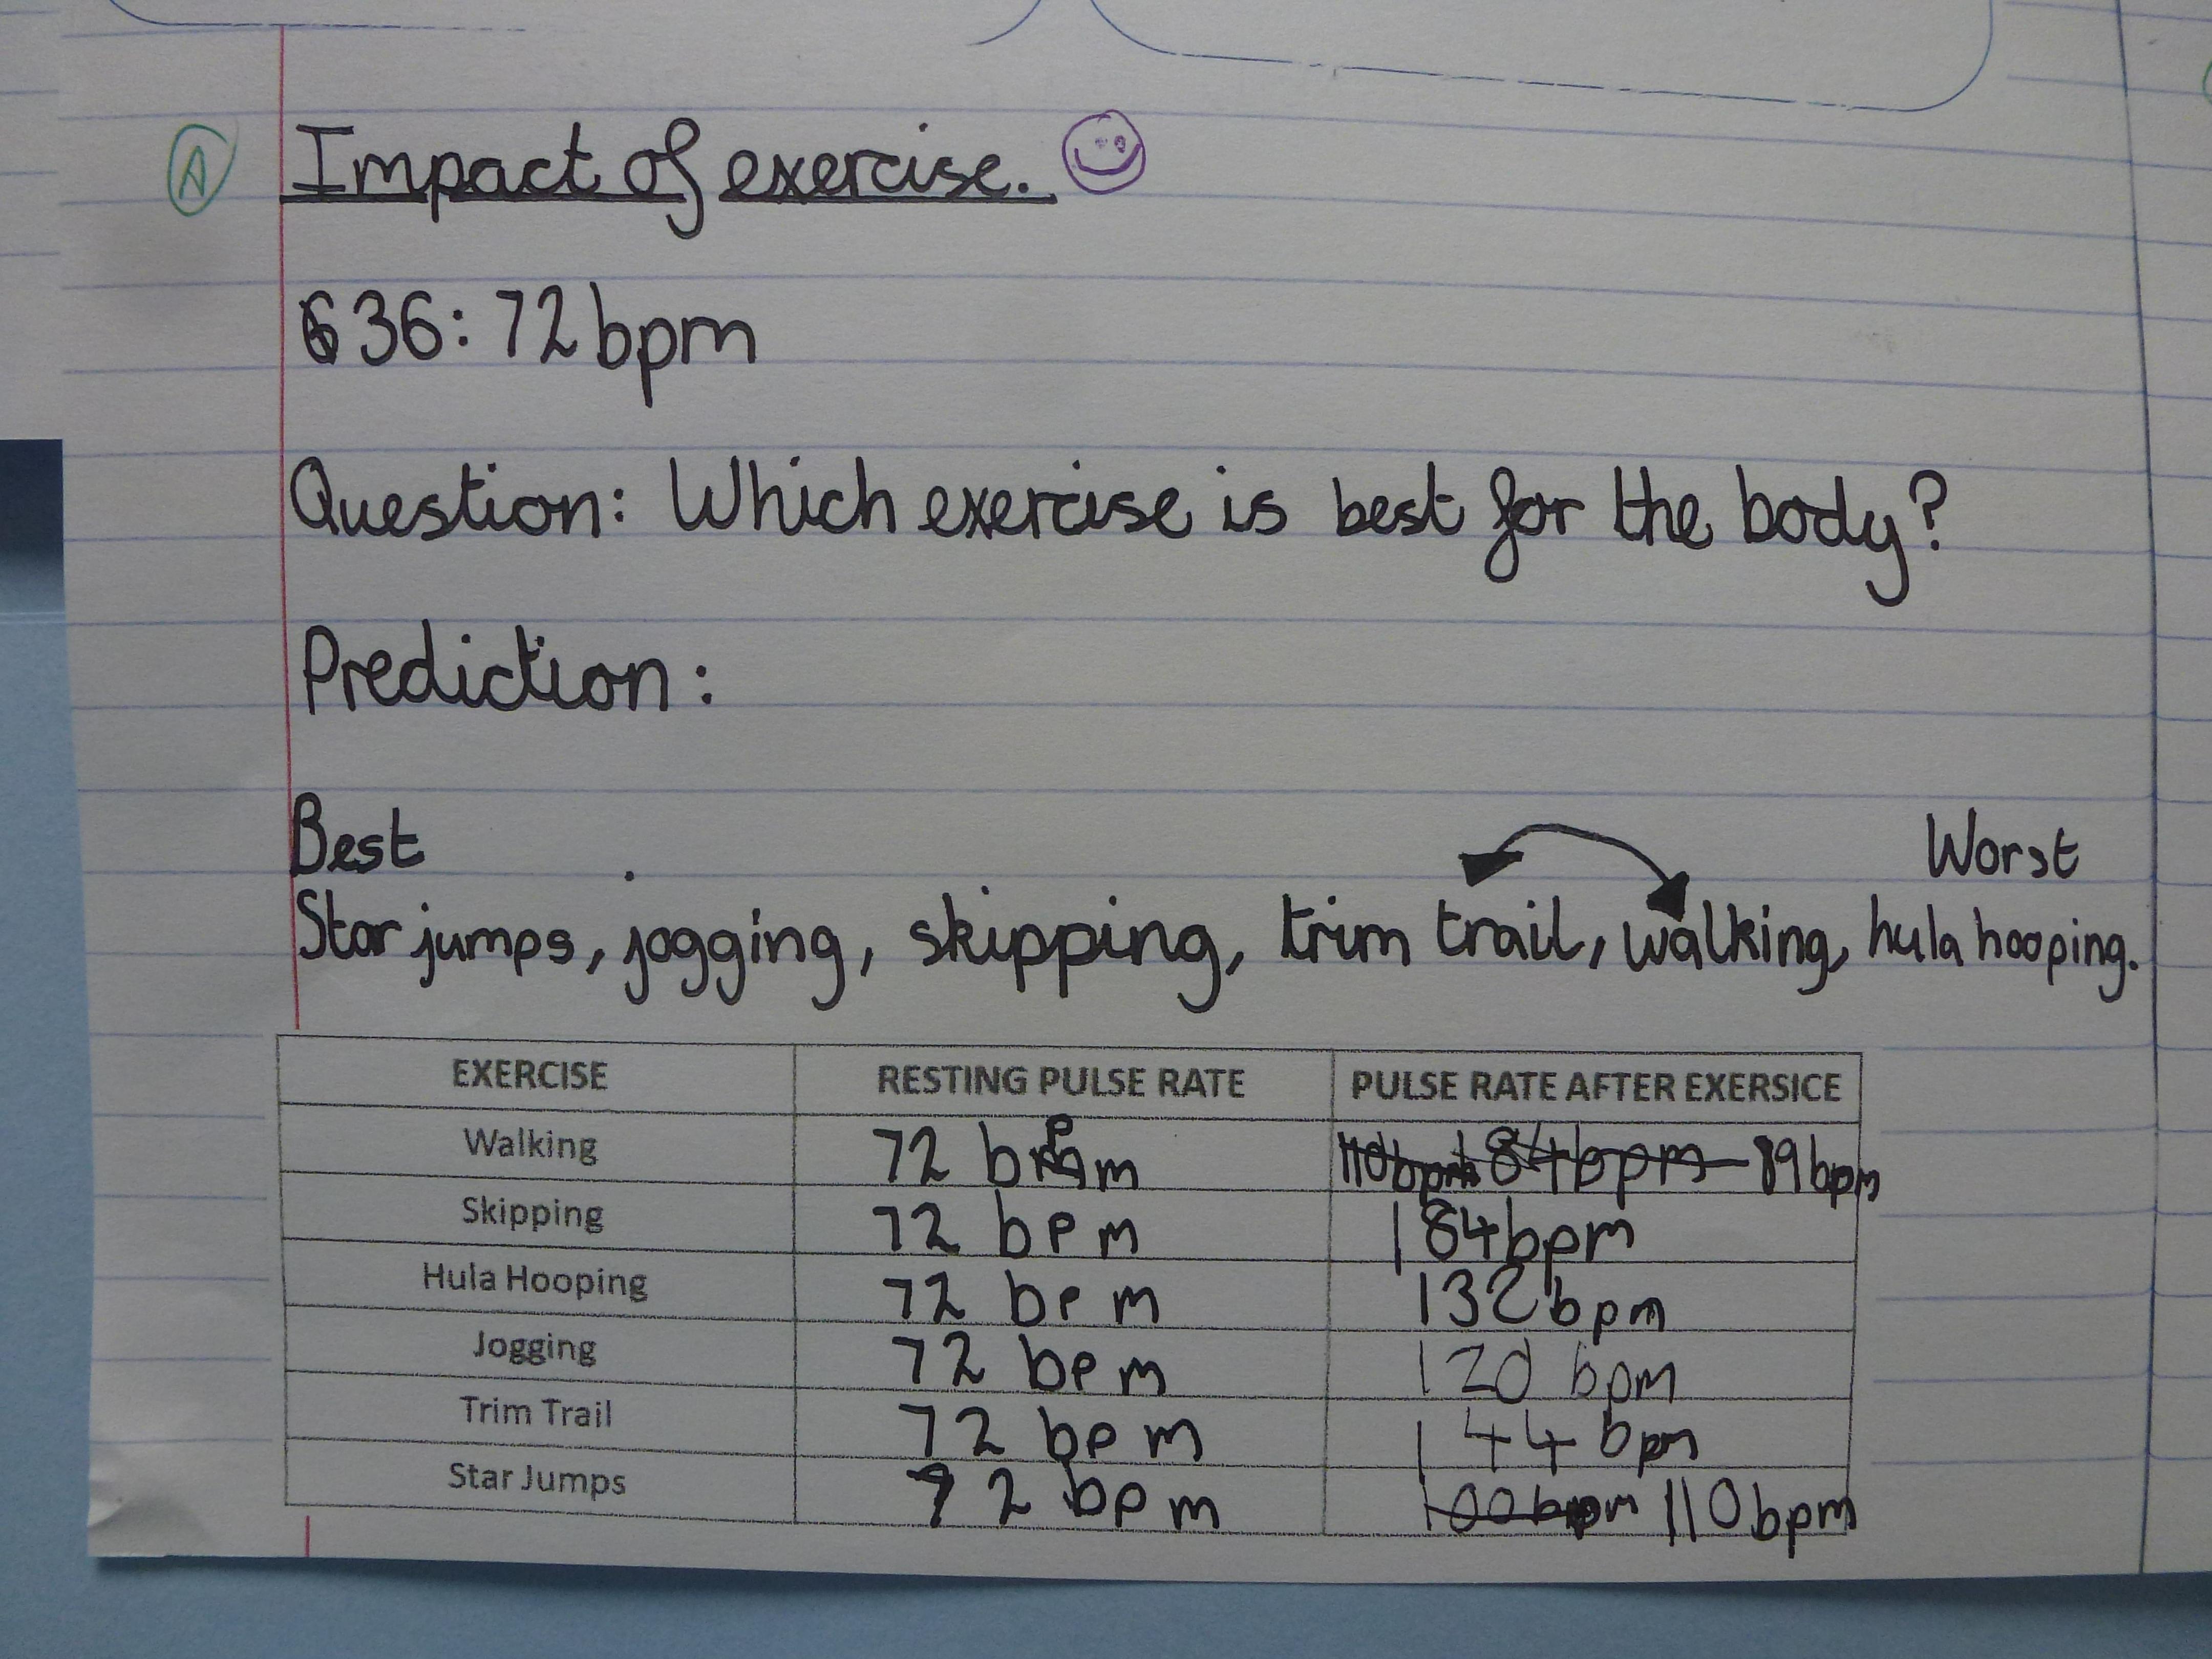 A Impact of exercise.
636: 72 bpm
Question: Which exercise is best for the body?
Prediction:
Best Worst
Star jumps, jogging, skipping, trim trail, walking, hula hooping.
EXERCISE RESTING PULSE RATE PULSE RATE AFTER EXERSICE
Walking 72 bpm 110bpm 84bpm 89bpm
Skipping 72 bpm 184bpm
Hula Hooping 72 bpm 132bpm
Jogging 72 bpm 120 bpm
Trim Trail 72 bpm 144 bpm
Star Jumps 72 bpm 100bpm 110bpm